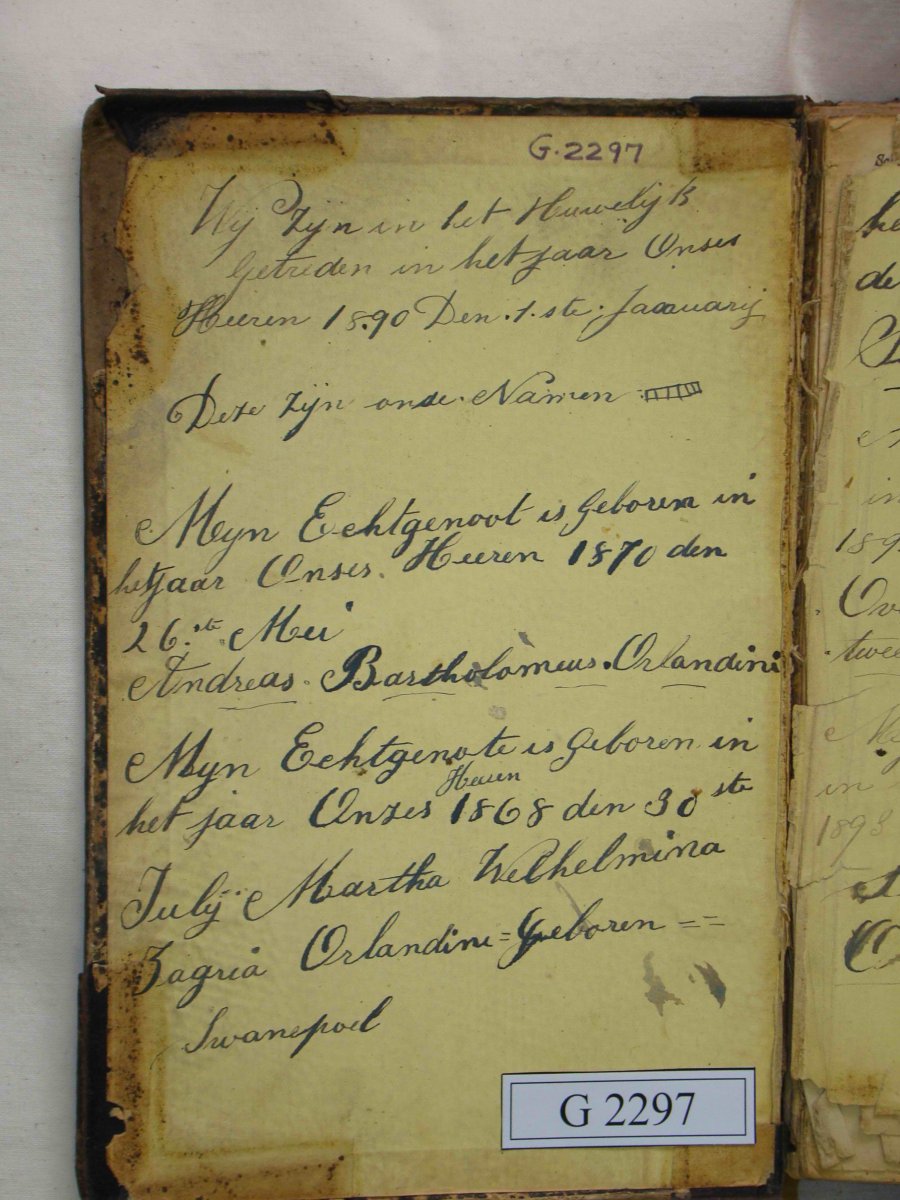 G.2297
Wij Zijn in het Huwelijk
Getreden in het jaar Onses
Heeren 1890 Den .1. ste. Januarij
Deze Zijn onse Namen
Myn Echtgenoot is Geboren in
het jaar Onses. Heeren 1870 den
26.ste Mei
Andreas. Bartholomeus. Orlandini
Myn Echtgenote is Geboren in
het jaar Onzes Heeren 1868 den 30 ste
Julij Martha Welhelmina
Zagria Orlandini = Geboren ==
Swanepoel
G 2297
he
de
in
189
Ov
twee
in
1893